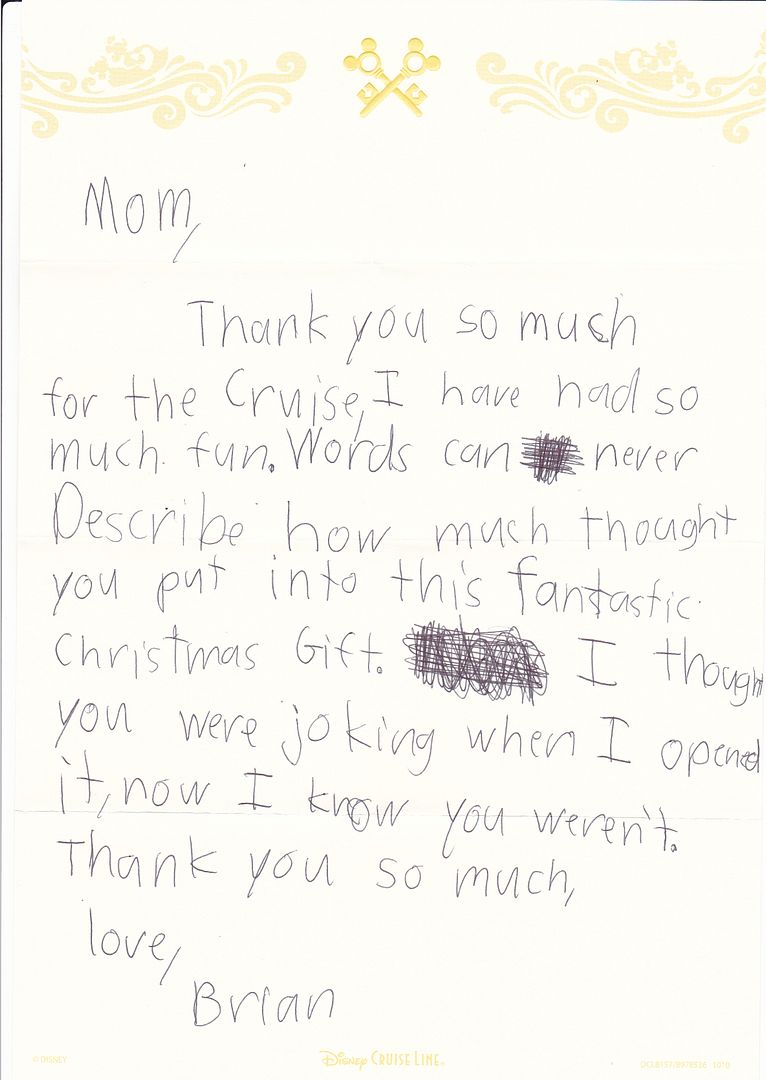 Mom,
Thank you so much
for the Cruise, I have had so
much fun. Words can never
Describe how much thought
you put into this fantastic
Christmas Gift. I thought
you were joking when I opened
it, now I know you weren't.
Thank you so much,
love,
Brian
© DISNEY
DISNEY CRUISE LINE.